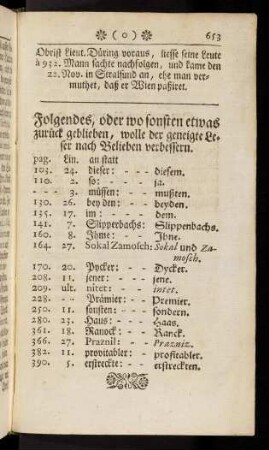 ( o ) 653
Obrist Lieut. Düring voraus, liesse seine Leute
à 932. Mann sachte nachfolgen, und kame den
22. Nov. in Stralsund an, ehe man ver-
muthet, daß er Wien paßiret.
Folgendes, oder wo sonsten etwas
zurück geblieben, wolle der geneigte Le-
ser nach Belieben verbessern.
pag. Lin. an statt
103. 24. dieser: - - diesem.
110. 2. so: - - ja.
- - 3. müssen: - mußten.
130. 26. bey den: - - beyden.
135. 17. im: - - dem.
141. 7. Slipperbachs: Slippenbachs.
160. 8. Ihme: - - Ihne.
164. 27. Sokal Zamosch: Sokal und Za-
mosch.
170. 20. Pycker: - - Dycket.
208. 11. jener: - - jene.
209. ult. nitet: - - intet.
228. - - Prämier: - - Premier.
250. 11. sonsten: - - sondern.
280. 23. Haus: - - Haas.
361. 18. Ranock: - - Ranck.
366. 27. Praznil: - - Prazniz.
382. 11. provitabler: - profitabler.
390. 5. erstreckte: - - erstreckten.